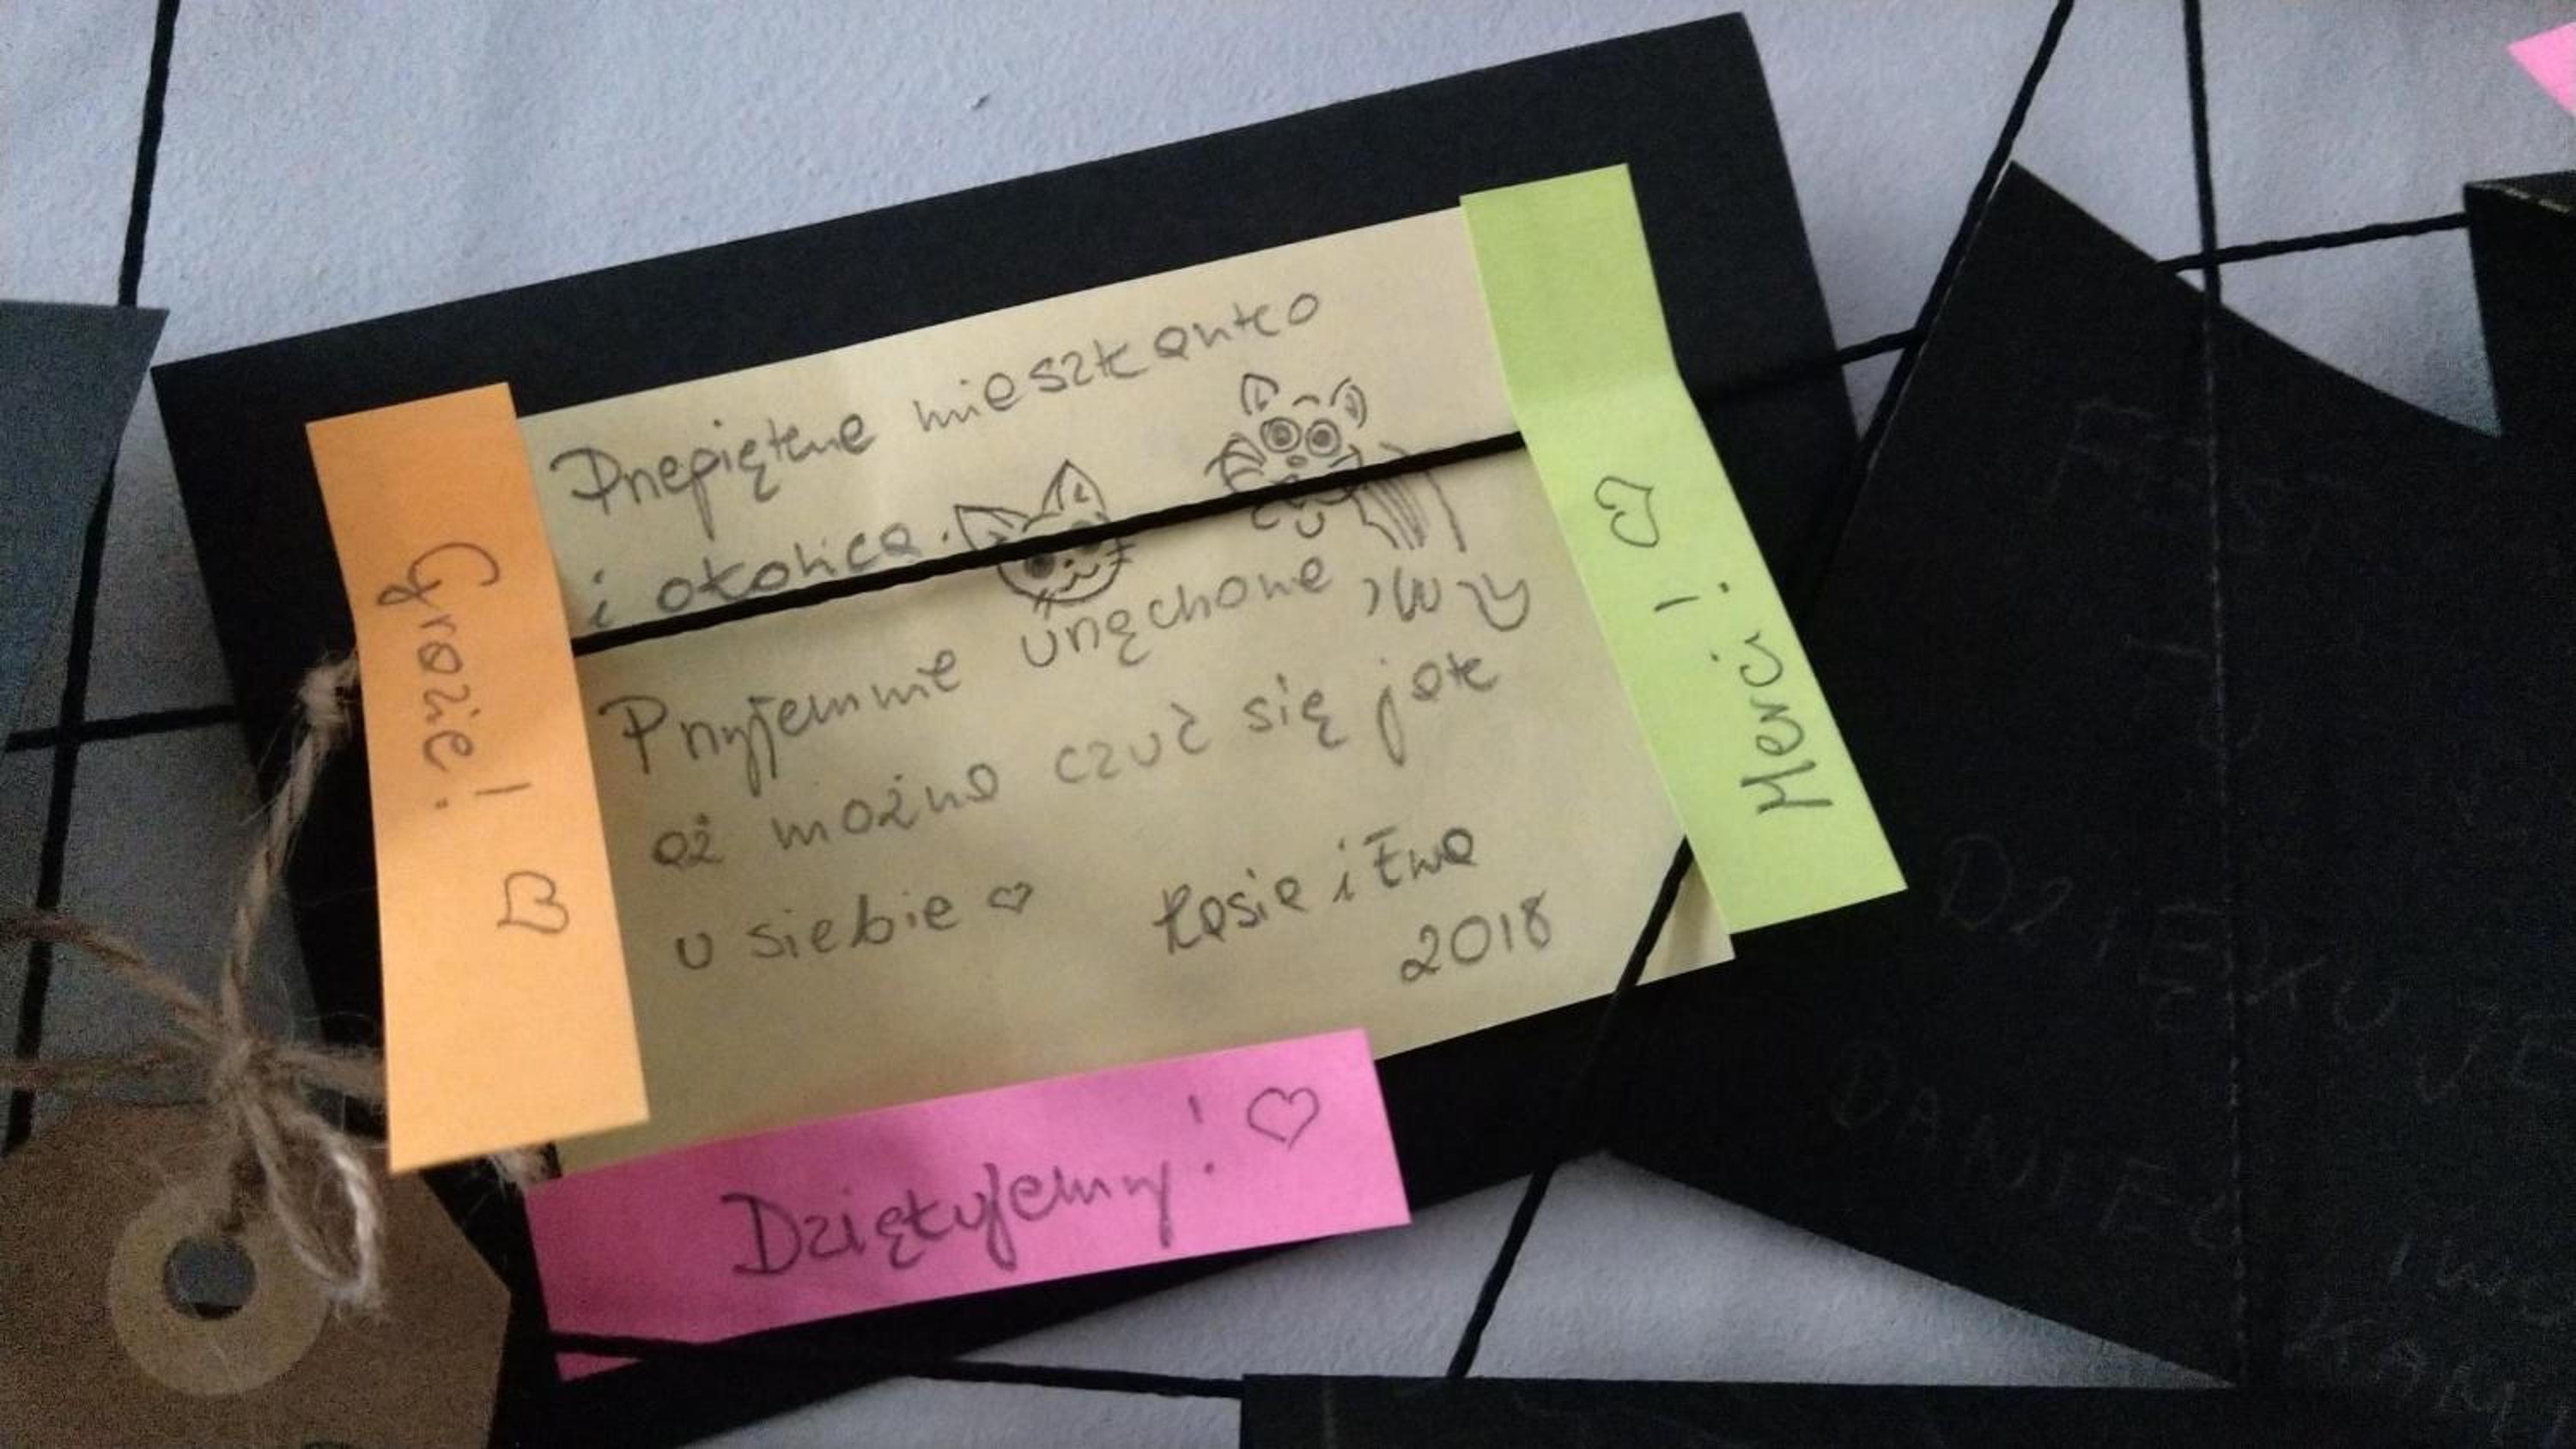 Przepiękne mieszkanko
i okolica.
Przyjemnie urządzone,
aż można czuć się jak
u siebie ♡ Kasia i Ewa
2018
Grazie! ♡
Merci! ♡
Dziękujemy! ♡
DZIĘKUJE
DANIEL